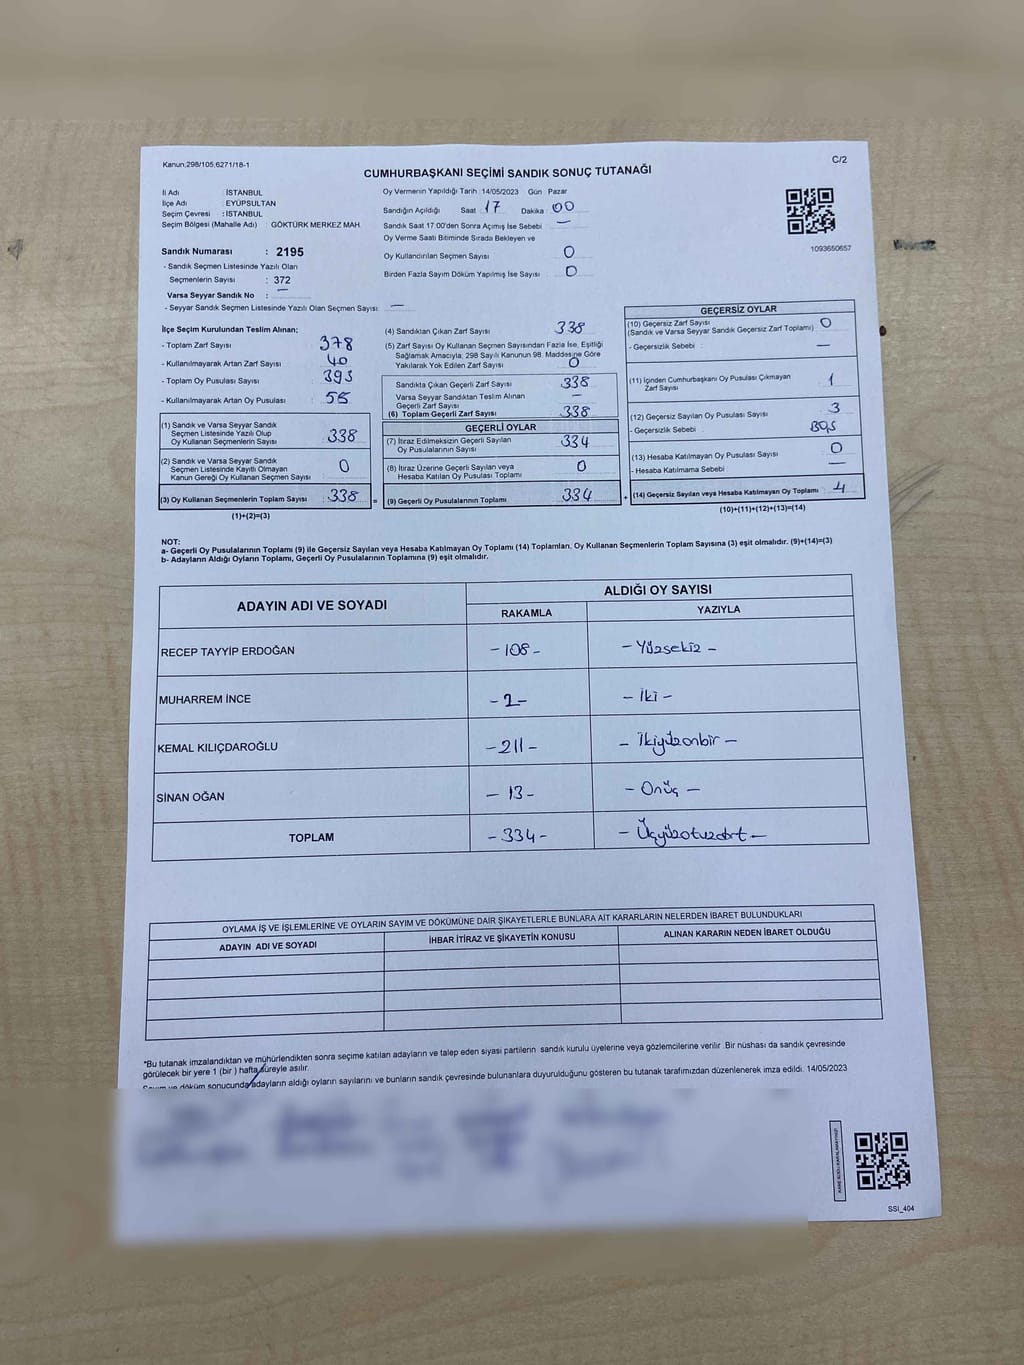 Kanun,298/105,6271/18-1
C/2
CUMHURBAŞKANI SEÇİMİ SANDIK SONUÇ TUTANAĞI
İl Adı : İSTANBUL
İlçe Adı : EYÜPSULTAN
Seçim Çevresi : İSTANBUL
Seçim Bölgesi (Mahalle Adı) : GÖKTÜRK MERKEZ MAH.
Sandık Numarası : 2195
- Sandık Seçmen Listesinde Yazılı Olan
Seçmenlerin Sayısı : 372
Varsa Seyyar Sandık No : —
- Seyyar Sandık Seçmen Listesinde Yazılı Olan Seçmen Sayısı : —
Oy Vermenin Yapıldığı Tarih : 14/05/2023 Gün : Pazar
Sandığın Açıldığı Saat 17 Dakika 00
Sandık Saat 17:00'den Sonra Açımış İse Sebebi —
Oy Verme Saati Bitiminde Sırada Bekleyen ve
Oy Kullandırılan Seçmen Sayısı 0
Birden Fazla Sayım Döküm Yapılmış İse Sayısı 0
1093650657
İlçe Seçim Kurulundan Teslim Alınan;
- Toplam Zarf Sayısı : 378
- Kullanılmayarak Artan Zarf Sayısı : 40
- Toplam Oy Pusulası Sayısı : 393
- Kullanılmayarak Artan Oy Pusulası : 55
(1) Sandık ve Varsa Seyyar Sandık
Seçmen Listesinde Yazılı Olup
Oy Kullanan Seçmenlerin Sayısı : 338
(2) Sandık ve Varsa Seyyar Sandık
Seçmen Listesinde Kayıtlı Olmayan
Kanun Gereği Oy Kullanan Seçmen Sayısı : 0
(3) Oy Kullanan Seçmenlerin Toplam Sayısı : 338 =
(1)+(2)=(3)
(4) Sandıktan Çıkan Zarf Sayısı 338
(5) Zarf Sayısı Oy Kullanan Seçmen Sayısından Fazla İse, Eşitliği
Sağlamak Amacıyla, 298 Sayılı Kanunun 98. Maddesine Göre
Yakılarak Yok Edilen Zarf Sayısı 0
Sandıkta Çıkan Geçerli Zarf Sayısı 338
Varsa Seyyar Sandıktan Teslim Alınan
Geçerli Zarf Sayısı —
(6) Toplam Geçerli Zarf Sayısı 338
GEÇERLİ OYLAR
(7) İtiraz Edilmeksizin Geçerli Sayılan
Oy Pusulalarının Sayısı 334
(8) İtiraz Üzerine Geçerli Sayılan veya
Hesaba Katılan Oy Pusulası Toplamı 0
(9) Geçerli Oy Pusulalarının Toplamı 334 +
GEÇERSİZ OYLAR
(10) Geçersiz Zarf Sayısı
(Sandık ve Varsa Seyyar Sandık Geçersiz Zarf Toplamı) 0
- Geçersizlik Sebebi : —
(11) İçinden Cumhurbaşkanı Oy Pusulası Çıkmayan
Zarf Sayısı 1
(12) Geçersiz Sayılan Oy Pusulası Sayısı 3
- Geçersizlik Sebebi : BOŞ
(13) Hesaba Katılmayan Oy Pusulası Sayısı 0
- Hesaba Katılmama Sebebi : —
(14) Geçersiz Sayılan veya Hesaba Katılmayan Oy Toplamı : 4
(10)+(11)+(12)+(13)=(14)
NOT:
a- Geçerli Oy Pusulalarının Toplamı (9) ile Geçersiz Sayılan veya Hesaba Katılmayan Oy Toplamı (14) Toplamları, Oy Kullanan Seçmenlerin Toplam Sayısına (3) eşit olmalıdır. (9)+(14)=(3)
b- Adayların Aldığı Oyların Toplamı, Geçerli Oy Pusulalarının Toplamına (9) eşit olmalıdır.
ADAYIN ADI VE SOYADI
ALDIĞI OY SAYISI
RAKAMLA YAZIYLA
RECEP TAYYİP ERDOĞAN - 108 - - Yüzsekiz -
MUHARREM İNCE - 2 - - İki -
KEMAL KILIÇDAROĞLU - 211 - - İkiyüzonbir -
SİNAN OĞAN - 13 - - Onüç -
TOPLAM - 334 - - Üçyüzotuzdört -
OYLAMA İŞ VE İŞLEMLERİNE VE OYLARIN SAYIM VE DÖKÜMÜNE DAİR ŞİKAYETLERLE BUNLARA AİT KARARLARIN NELERDEN İBARET BULUNDUKLARI
ADAYIN ADI VE SOYADI İHBAR İTİRAZ VE ŞİKAYETİN KONUSU ALINAN KARARIN NEDEN İBARET OLDUĞU
*Bu tutanak imzalandıktan ve mühürlendikten sonra seçime katılan adayların ve talep eden siyasi partilerin sandık kurulu üyelerine veya gözlemcilerine verilir. Bir nüshası da sandık çevresinde
görülecek bir yere 1 (bir) hafta süreyle asılır.
Sayım ve döküm sonucunda adayların aldığı oyların sayılarını ve bunların sandık çevresinde bulunanlara duyurulduğunu gösteren bu tutanak tarafımızdan düzenlenerek imza edildi. 14/05/2023
SSI_404